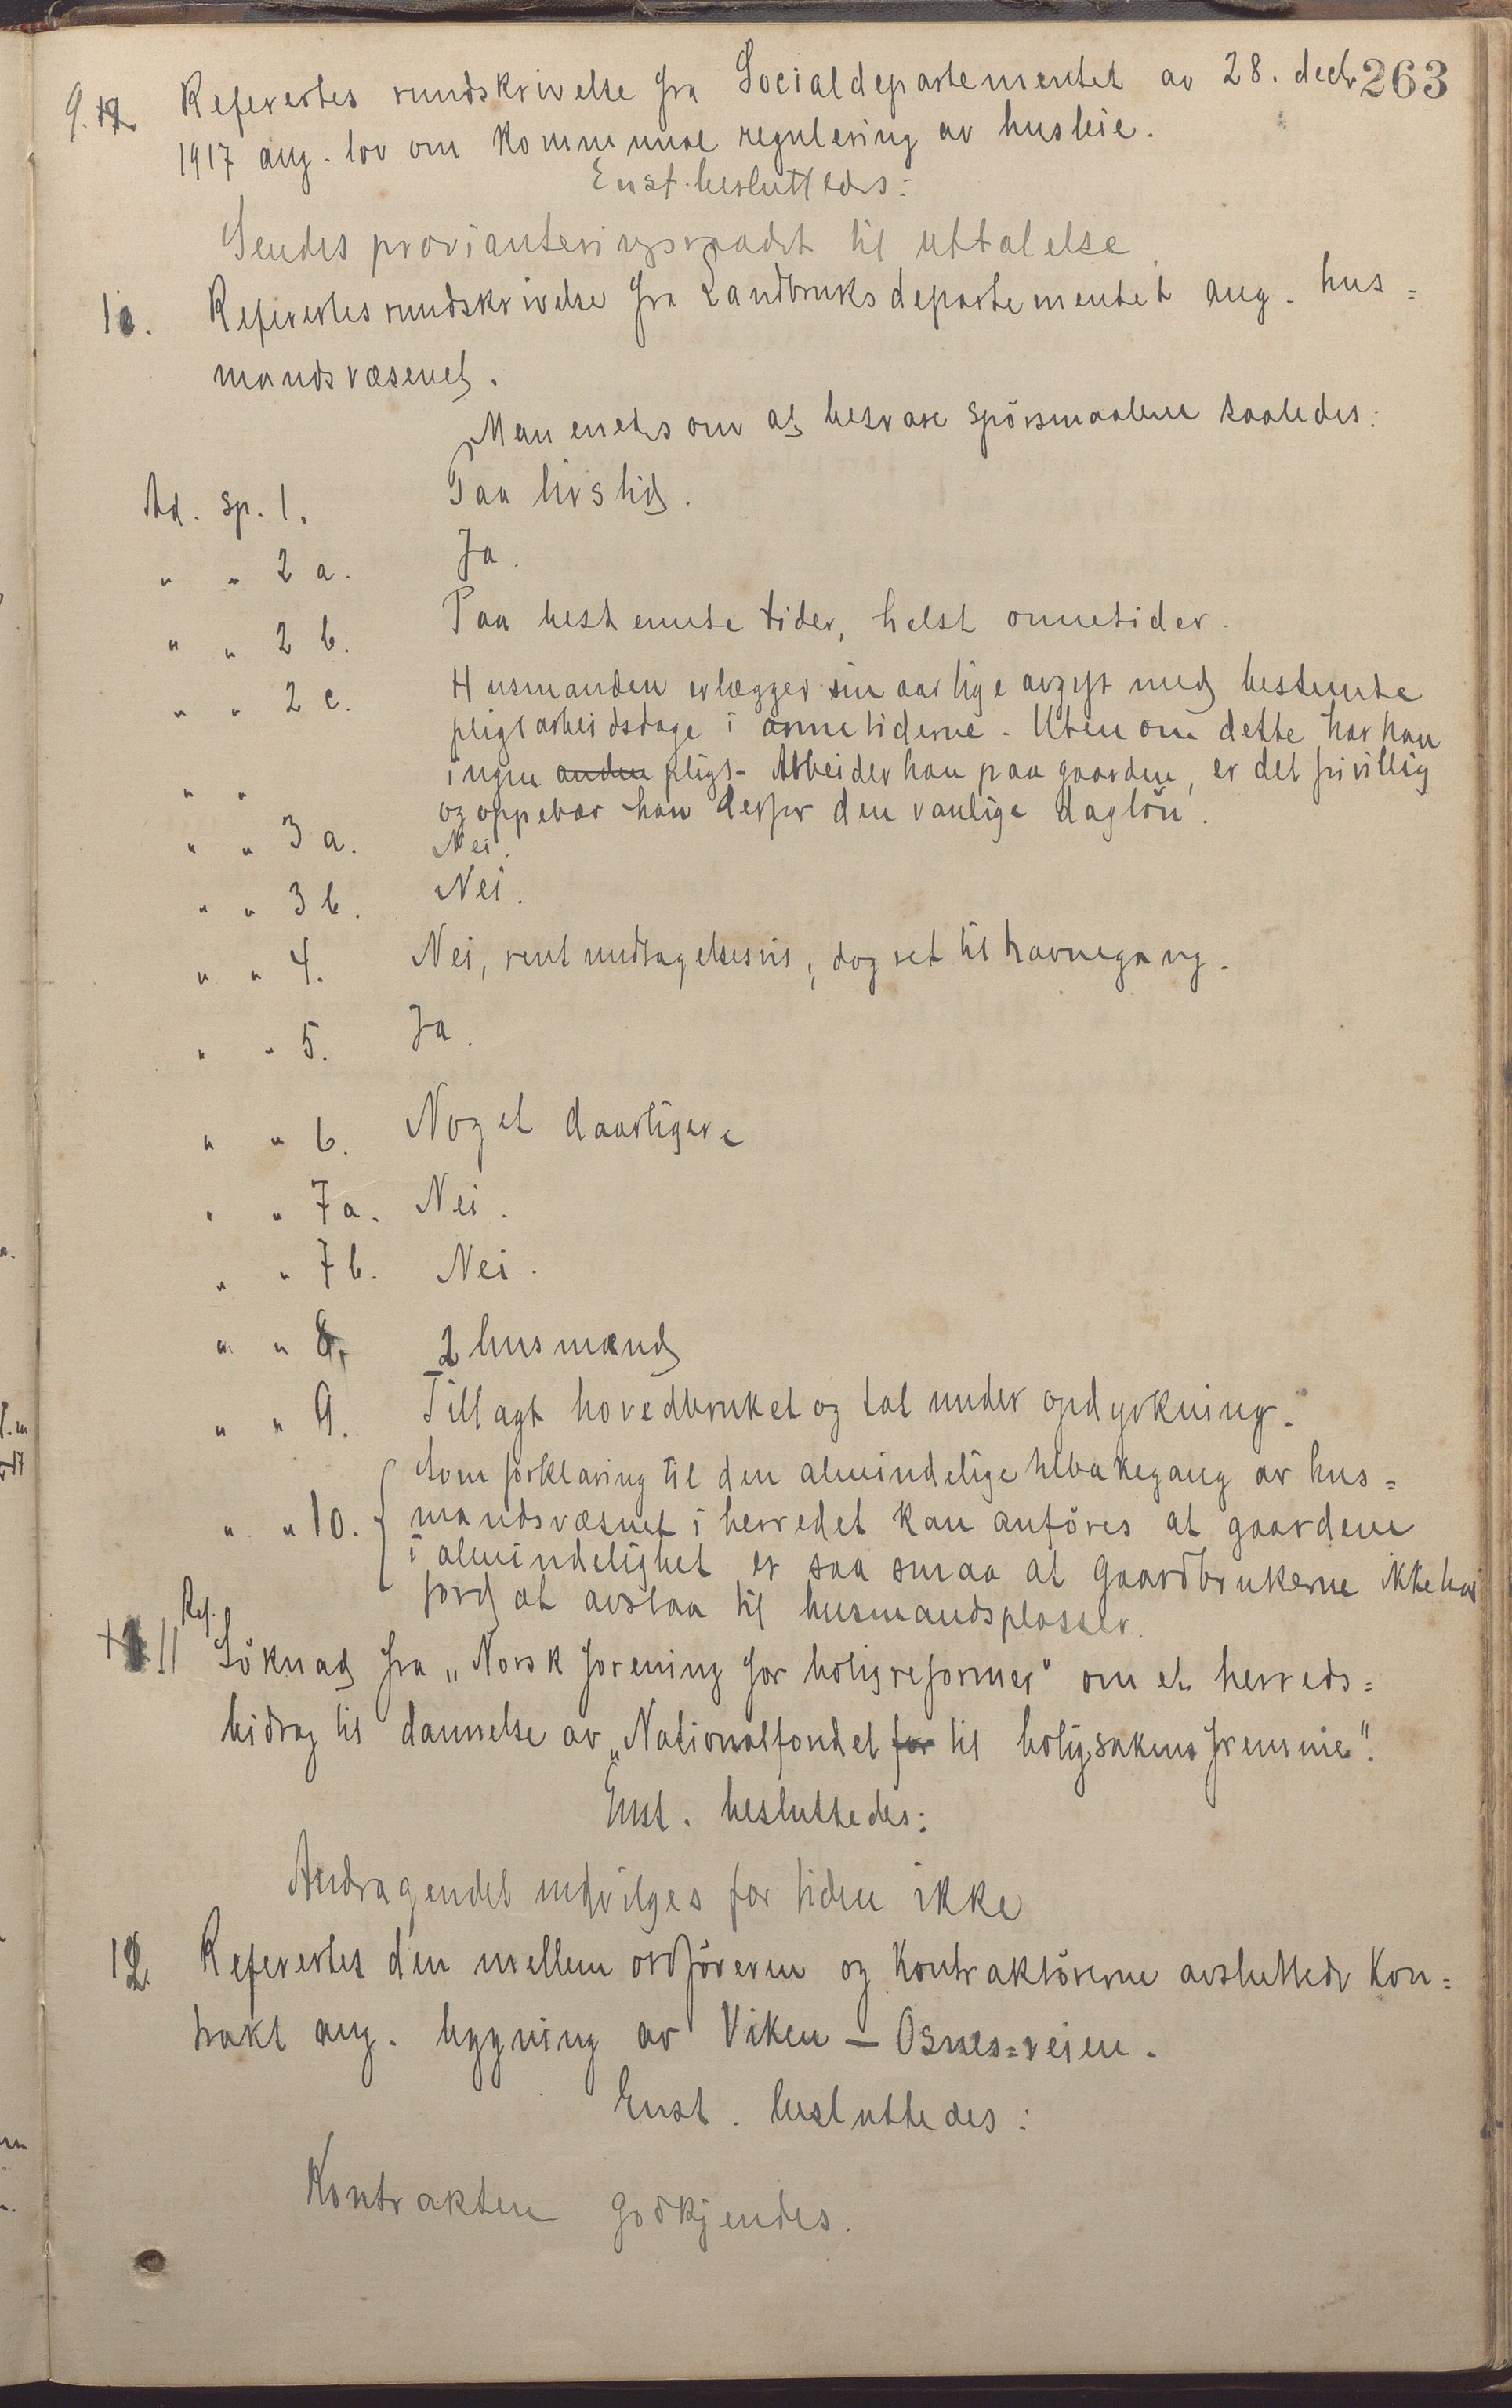 263
9. Refereertes rundskrivelse fra Socialdepartementet av 28. decbr
1917 ang. lov om kommunal regulering av husleie.
Enst. besluttedes:
Sendes provianteringsraadet til uttalelse.
10. Refereertes rundskrivelse fra Landbruksdepartementet ang. hus=
mandsvæsenet.
Man enedes om at besvare spörsmaalene saaledes:
Ad. sp. 1. Paa livstid.
" " 2 a. Ja.
" " 2 b. Paa bestemte tider, helst onnetider.
" " 2 c. Husmanden erlægger sin aarlige avgift med bestemte
pligtarbeidsdage i onnetiderne. Uten om dette har han
" " ingen anden pligt. Arbeider han paa gaarden, er det frivillig
og oppebær han derfor den vanlige daglön.
" " 3 a. Nei.
" " 3 b. Nei.
" " 4. Nei, rent undtagelsesvis, dog ret til havnegang.
" " 5. Ja.
" " 6. Noget daarligere
" " 7a. Nei.
" " 7b. Nei.
" " 8. 2 husmænd
" " 9. Tillagt hovedbruket og tat under opdyrkning.
Som forklaring til den almindelige tilbakegang av hus=
" " 10. mandsvæsnet i herredet kan anföres at gaardene
i almindelighet er saa smaa at gaardbrukerne ikke har
jord at avstaa til husmandsplasser.
Ref.
+ 11 Söknad fra "Norsk forening for boligreformer" om et herreds=
bidrag til dannelse av "Nationalfondet for til boligsakens fremme".
Enst. besluttedes:
Andragendet indvilges for tiden ikke
12 Refereertes den mellem ordföreren og kontraktörerne avsluttede kon=
trakt ang. bygning av Viken - Osnes=veien.
Enst. besluttedes:
Kontrakten godkjendes.